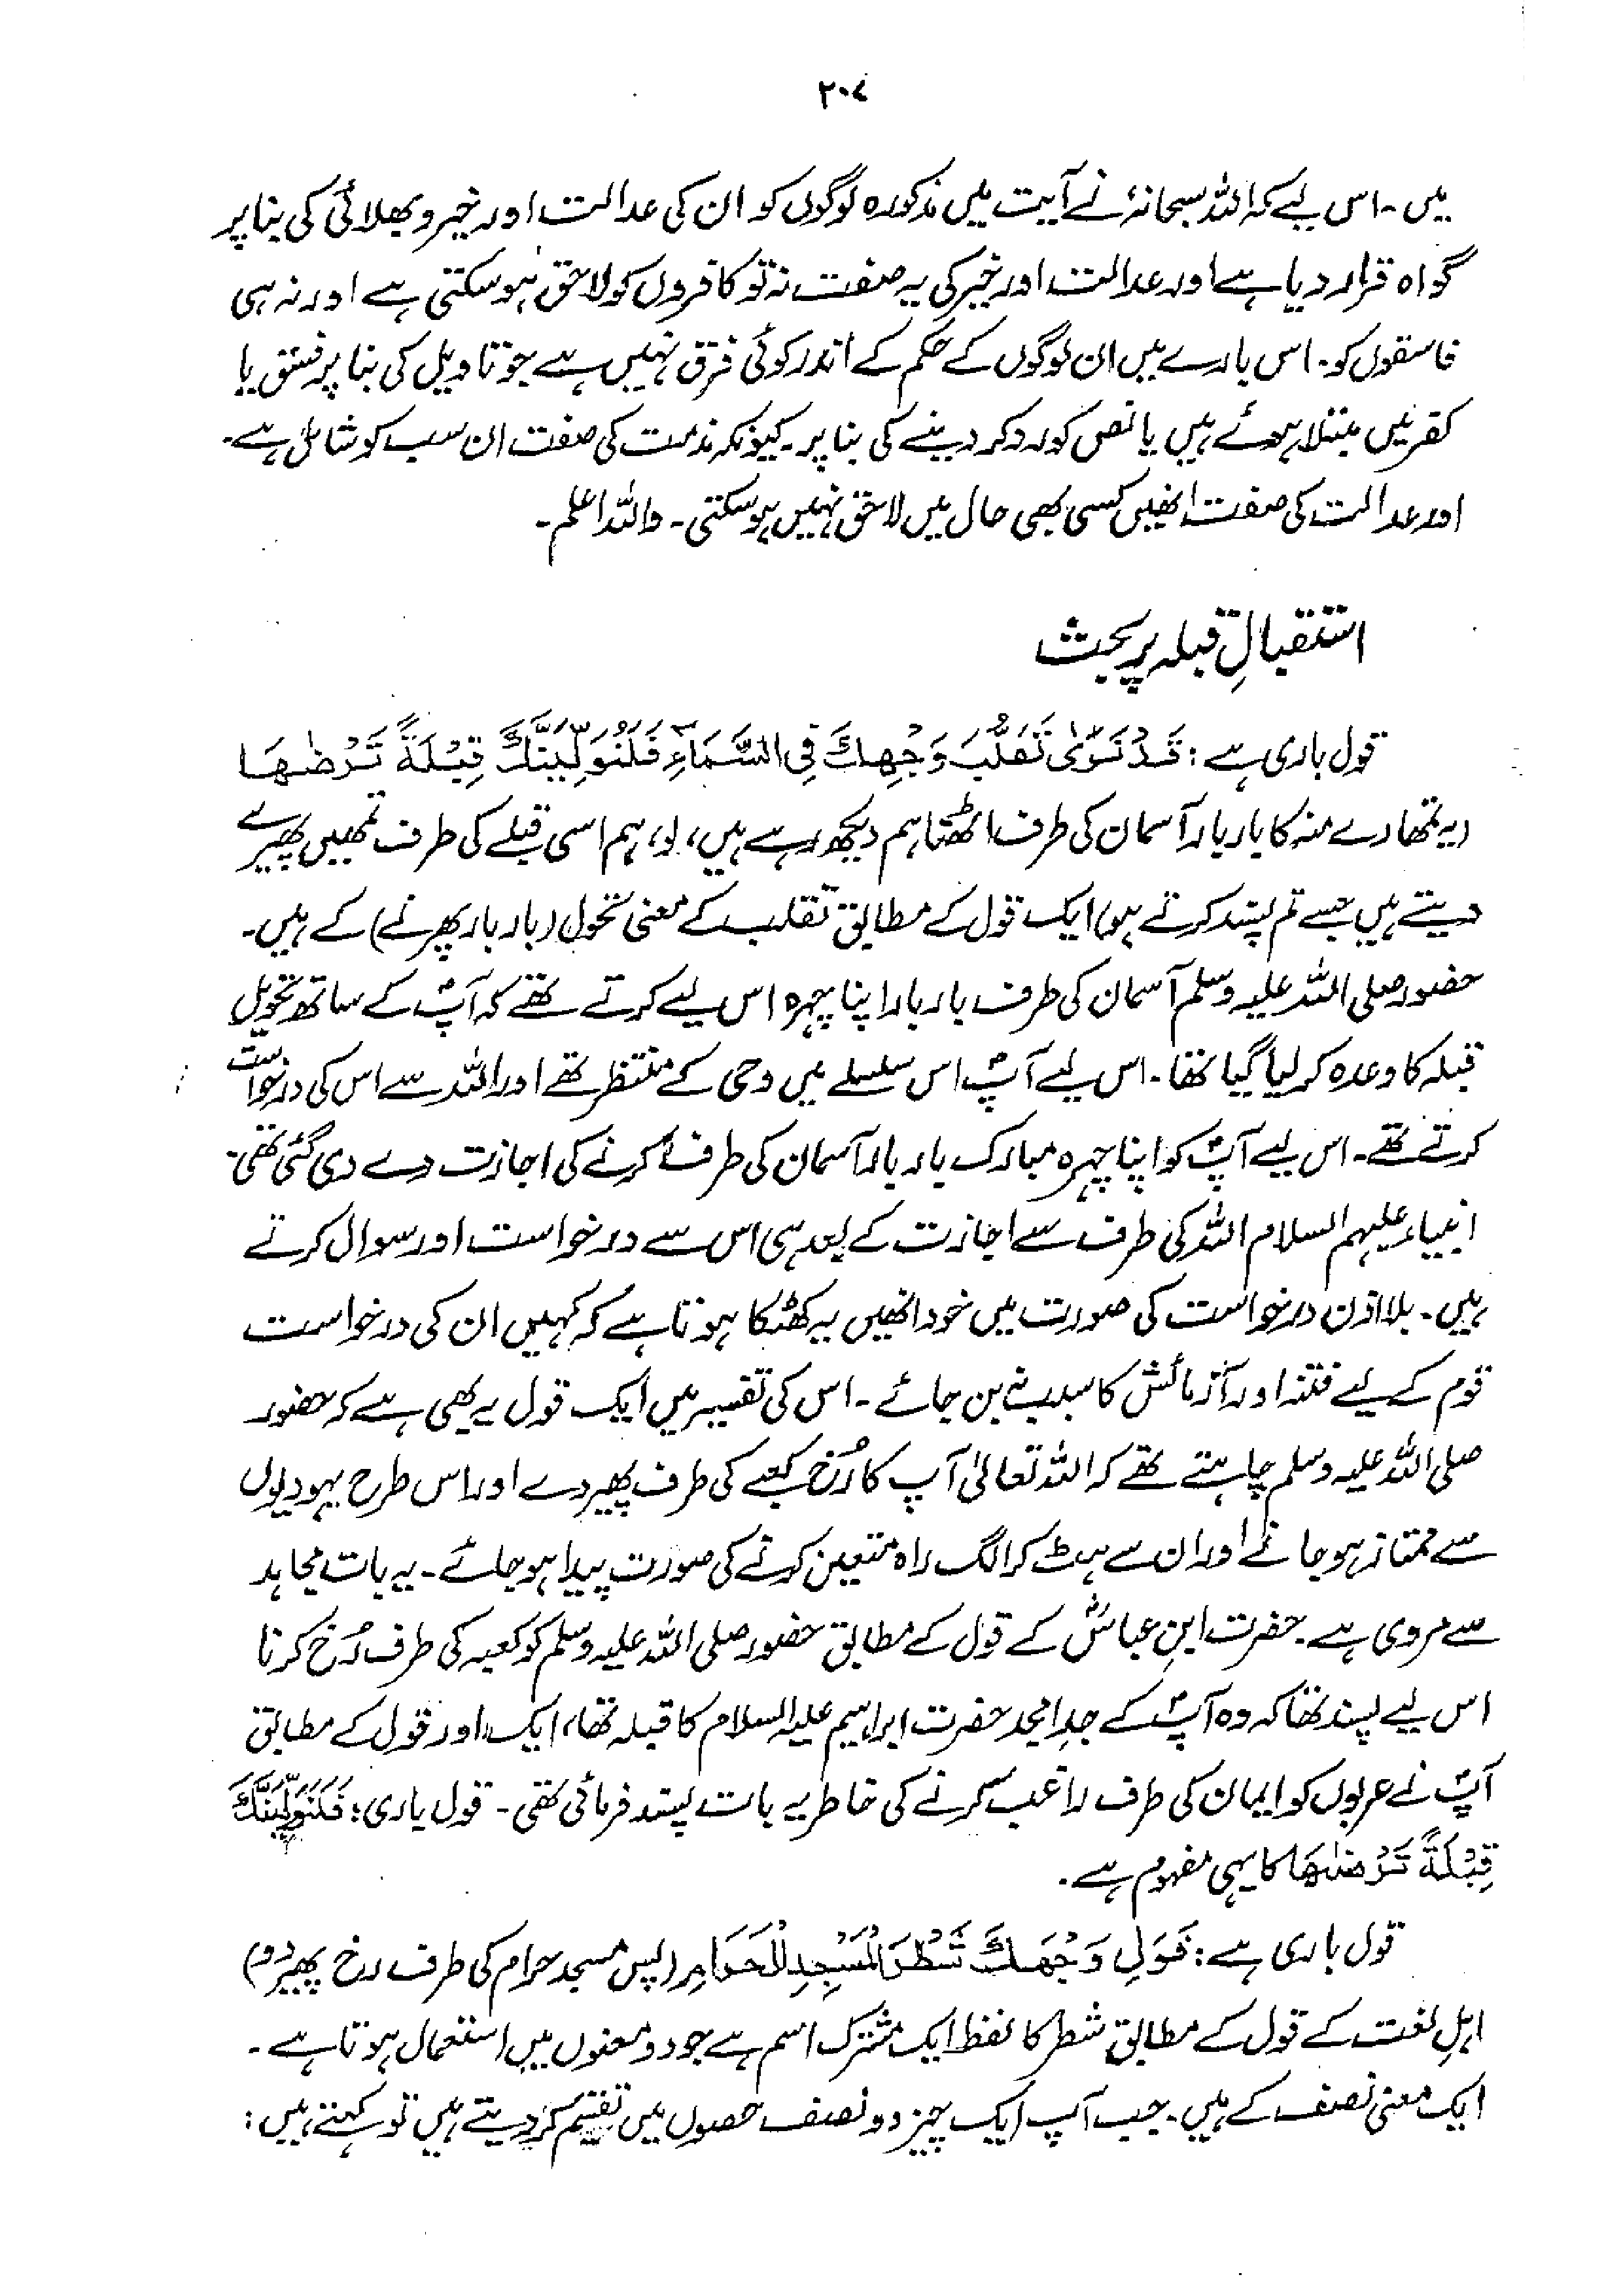 ۲۰۷
ہیں۔ اس لیے کہ اللہ سبحانہٗ نے آیت میں مذکورہ لوگوں کو ان کی عدالت اور خیر و بھلائی کی بنا پر
گواہ قرار دیا ہے اور عدالت اور خیر کی یہ صفت نہ تو کافروں کو لاحق ہو سکتی ہے اور نہ ہی
فاسقوں کو۔ اس بارے میں ان لوگوں کے حکم کے اندر کوئی فرق نہیں ہے جو تاویل کی بنا پر فسق یا
کفر میں مبتلا ہوئے ہیں یا نص کو رد کر دینے کی بنا پر۔ کیونکہ مذمت کی صفت ان سب کو شامل ہے۔
اور عدالت کی صفت انھیں کسی بھی حال میں لاحق نہیں ہو سکتی۔ واللہ اعلم۔
استقبالِ قبلہ پر بحث
قول باری ہے: قَدْ نَرٰى تَقَلُّبَ وَجْهِكَ فِي السَّمَآءِ فَلَنُوَلِّيَنَّكَ قِبْلَةً تَرْضٰهَا
(یہ تمھارے منہ کا بار بار آسمان کی طرف اٹھنا ہم دیکھ رہے ہیں، لو، ہم اسی قبلے کی طرف تمھیں پھیرے
دیتے ہیں جسے تم پسند کرتے ہو) ایک قول کے مطابق تقلب کے معنی تحول (بار بار پھرنے) کے ہیں۔
حضور صلی اللہ علیہ وسلم آسمان کی طرف بار بار اپنا چہرہ اس لیے کرتے تھے کہ آپؐ کے ساتھ تحویلِ
قبلہ کا وعدہ کر لیا گیا تھا۔ اس لیے آپؐ اس سلسلے میں وحی کے منتظر تھے اور اللہ سے اس کی درخواست
کرتے تھے۔ اس لیے آپؐ کو اپنا چہرہ مبارک بار بار آسمان کی طرف کرنے کی اجازت دے دی گئی تھی۔
انبیاء علیہم السلام اللہ کی طرف سے اجازت کے بعد ہی اس سے درخواست اور سوال کرتے
ہیں۔ بلا اذن درخواست کی صورت میں خود انھیں یہ کھٹکا ہوتا ہے کہ کہیں ان کی درخواست
قوم کے لیے فتنہ اور آزمائش کا سبب نہ بن جائے۔ اس کی تفسیر میں ایک قول یہ بھی ہے کہ حضور
صلی اللہ علیہ وسلم چاہتے تھے کہ اللہ تعالیٰ آپ کا رُخ کعبے کی طرف پھیر دے اور اس طرح یہودیوں
سے ممتاز ہو جانے اور ان سے ہٹ کر الگ راہ متعین کرنے کی صورت پیدا ہو جائے۔ یہ بات مجاہد
سے مروی ہے۔ حضرت ابنِ عباسؓ کے قول کے مطابق حضور صلی اللہ علیہ وسلم کو کعبہ کی طرف رُخ کرنا
اس لیے پسند تھا کہ وہ آپؐ کے جدِ امجد حضرت ابراہیم علیہ السلام کا قبلہ تھا، ایک اور قول کے مطابق
آپؐ نے عربوں کو ایمان کی طرف راغب کرنے کی خاطر یہ بات پسند فرمائی تھی۔ قول باری: فَلَنُوَلِّيَنَّكَ
قِبْلَةً تَرْضٰهَا کا یہی مفہوم ہے۔
قول باری ہے: فَوَلِّ وَجْهَكَ شَطْرَ الْمَسْجِدِ الْحَرَامِ (پس مسجد حرام کی طرف رخ پھیر دو)
اہلِ لغت کے قول کے مطابق شطر کا لفظ ایک مشترک اسم ہے جو دو معنوں میں استعمال ہوتا ہے۔
ایک معنی نصف کے ہیں۔ جب آپ ایک چیز دو نصف حصوں میں تقسیم کر دیتے ہیں تو کہتے ہیں: